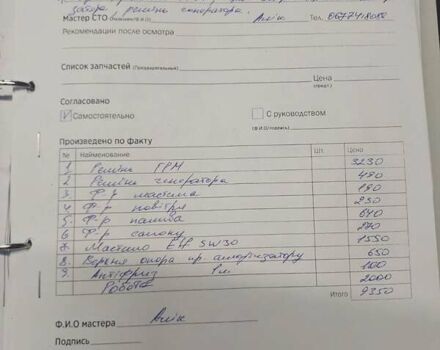 затора, ремінь генератора.
Мастер СТО Алік Тел. 0677418052
Рекомендации после осмотра
Список запчастей (Предварительный)
Цена
Согласовано
V Самостоятельно С руководством
(Ф.И.О/подпись)
Произведено по факту
№ Наименование Шт. Цена
1 Ремінь ГРМ 3230
2 Ремінь генератора 490
3 Ф-р мастила 190
4 Ф-р повітря 250
5. Ф-р палива 640
6 Ф-р салону 270
7 Мастило Elf 5W30 1550
8. Верхня опора пр. амортизатору 650
9. Антіфриз 1л. 100
Робота 2000
Итого 9350
Ф.И.О мастера Алік
Подпись